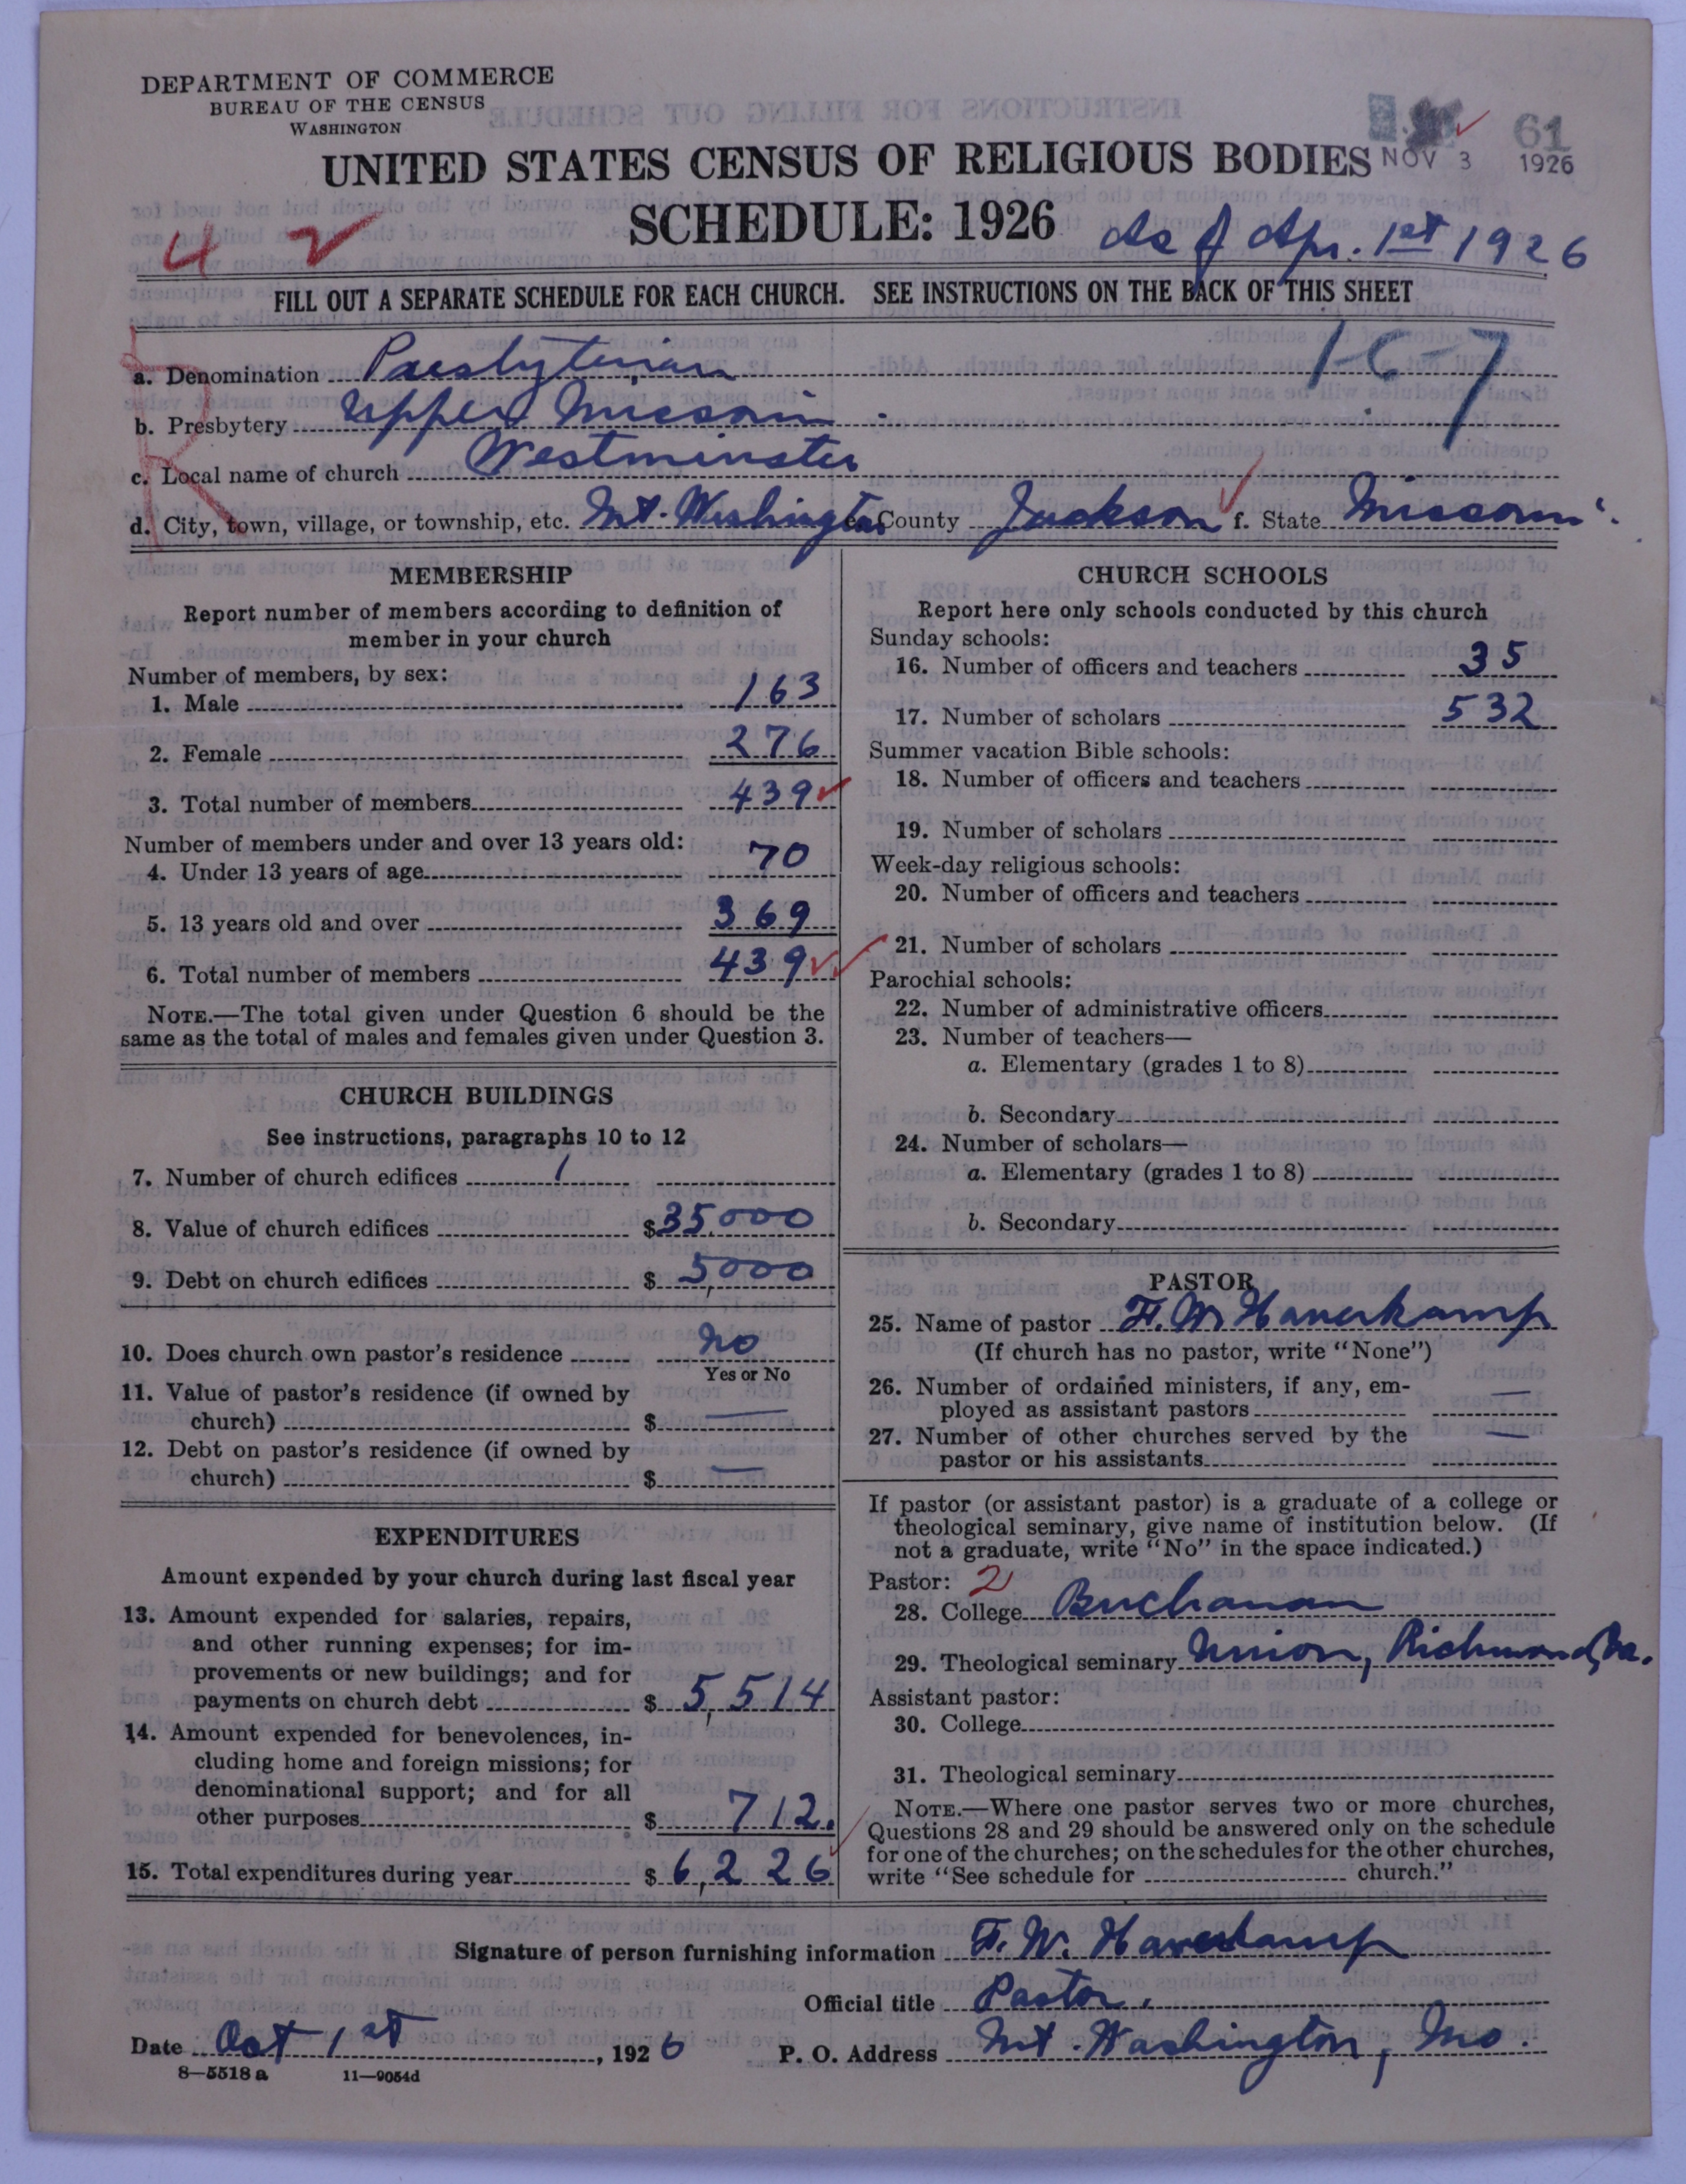 DEPARTMENT OF COMMERCE
BUREAU OF THE CENSUS
WASHINGTON
61
NOV 3 1926
UNITED STATES CENSUS OF RELIGIOUS BODIES
SCHEDULE: 1926 As of Apr. 1st 1926
4 2
FILL OUT A SEPARATE SCHEDULE FOR EACH CHURCH. SEE INSTRUCTIONS ON THE BACK OF THIS SHEET
1-6-7
a. Denomination Presbyterian
b. Presbytery Upper Missouri
c. Local name of church Westminster
d. City, town, village, or township, etc. Mt. Washington e. County Jackson f. State Missouri
MEMBERSHIP
Report number of members according to definition of
member in your church
Number of members, by sex:
1. Male 163
2. Female 276
3. Total number of members 439
Number of members under and over 13 years old:
4. Under 13 years of age 70
5. 13 years old and over 369
6. Total number of members 439
NOTE.—The total given under Question 6 should be the
same as the total of males and females given under Question 3.
CHURCH BUILDINGS
See instructions, paragraphs 10 to 12
7. Number of church edifices 1
8. Value of church edifices $35,000
9. Debt on church edifices $ 5,000
10. Does church own pastor's residence No
Yes or No
11. Value of pastor's residence (if owned by
church) $ —
12. Debt on pastor's residence (if owned by
church) $ —
EXPENDITURES
Amount expended by your church during last fiscal year
13. Amount expended for salaries, repairs,
and other running expenses; for im-
provements or new buildings; and for
payments on church debt $ 5,514
14. Amount expended for benevolences, in-
cluding home and foreign missions; for
denominational support; and for all
other purposes $ 712.
15. Total expenditures during year $ 6,226
CHURCH SCHOOLS
Report here only schools conducted by this church
Sunday schools:
16. Number of officers and teachers 35
17. Number of scholars 532
Summer vacation Bible schools:
18. Number of officers and teachers
19. Number of scholars
Week-day religious schools:
20. Number of officers and teachers
21. Number of scholars
Parochial schools:
22. Number of administrative officers
23. Number of teachers—
a. Elementary (grades 1 to 8)
b. Secondary
24. Number of scholars—
a. Elementary (grades 1 to 8)
b. Secondary
PASTOR
25. Name of pastor F. W. Haverkamp
(If church has no pastor, write "None")
26. Number of ordained ministers, if any, em-
ployed as assistant pastors —
27. Number of other churches served by the
pastor or his assistants —
If pastor (or assistant pastor) is a graduate of a college or
theological seminary, give name of institution below. (If
not a graduate, write "No" in the space indicated.)
Pastor: 2
28. College Buchanan
29. Theological seminary Union, Richmond, Va.
Assistant pastor:
30. College
31. Theological seminary
NOTE.—Where one pastor serves two or more churches,
Questions 28 and 29 should be answered only on the schedule
for one of the churches; on the schedules for the other churches,
write "See schedule for church."
Signature of person furnishing information F. W. Haverkamp
Official title Pastor.
Date Oct 1st, 1926 P. O. Address Mt. Washington, Mo.
8—5518 a 11—9054d